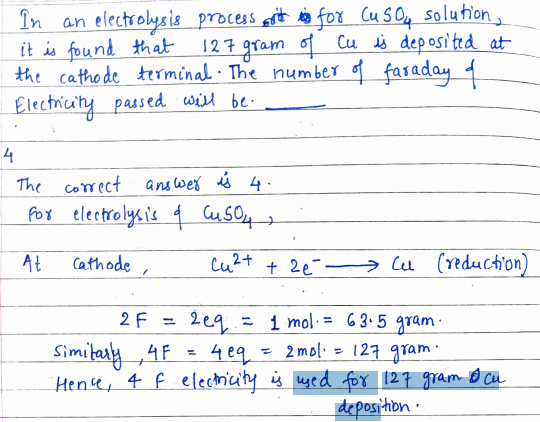 In an electrolysis process for CuSO4 solution,
it is found that 127 gram of Cu is deposited at
the cathode terminal. The number of faraday of
Electricity passed will be. ______
4
The correct answer is 4.
For electrolysis of CuSO4,
At Cathode, Cu2+ + 2e- ⟶ Cu (reduction)
2F = 2eq = 1 mol. = 63.5 gram.
Similarly, 4F = 4eq = 2mol. = 127 gram.
Hence, 4 F electricity is used for 127 gram Cu
deposition.